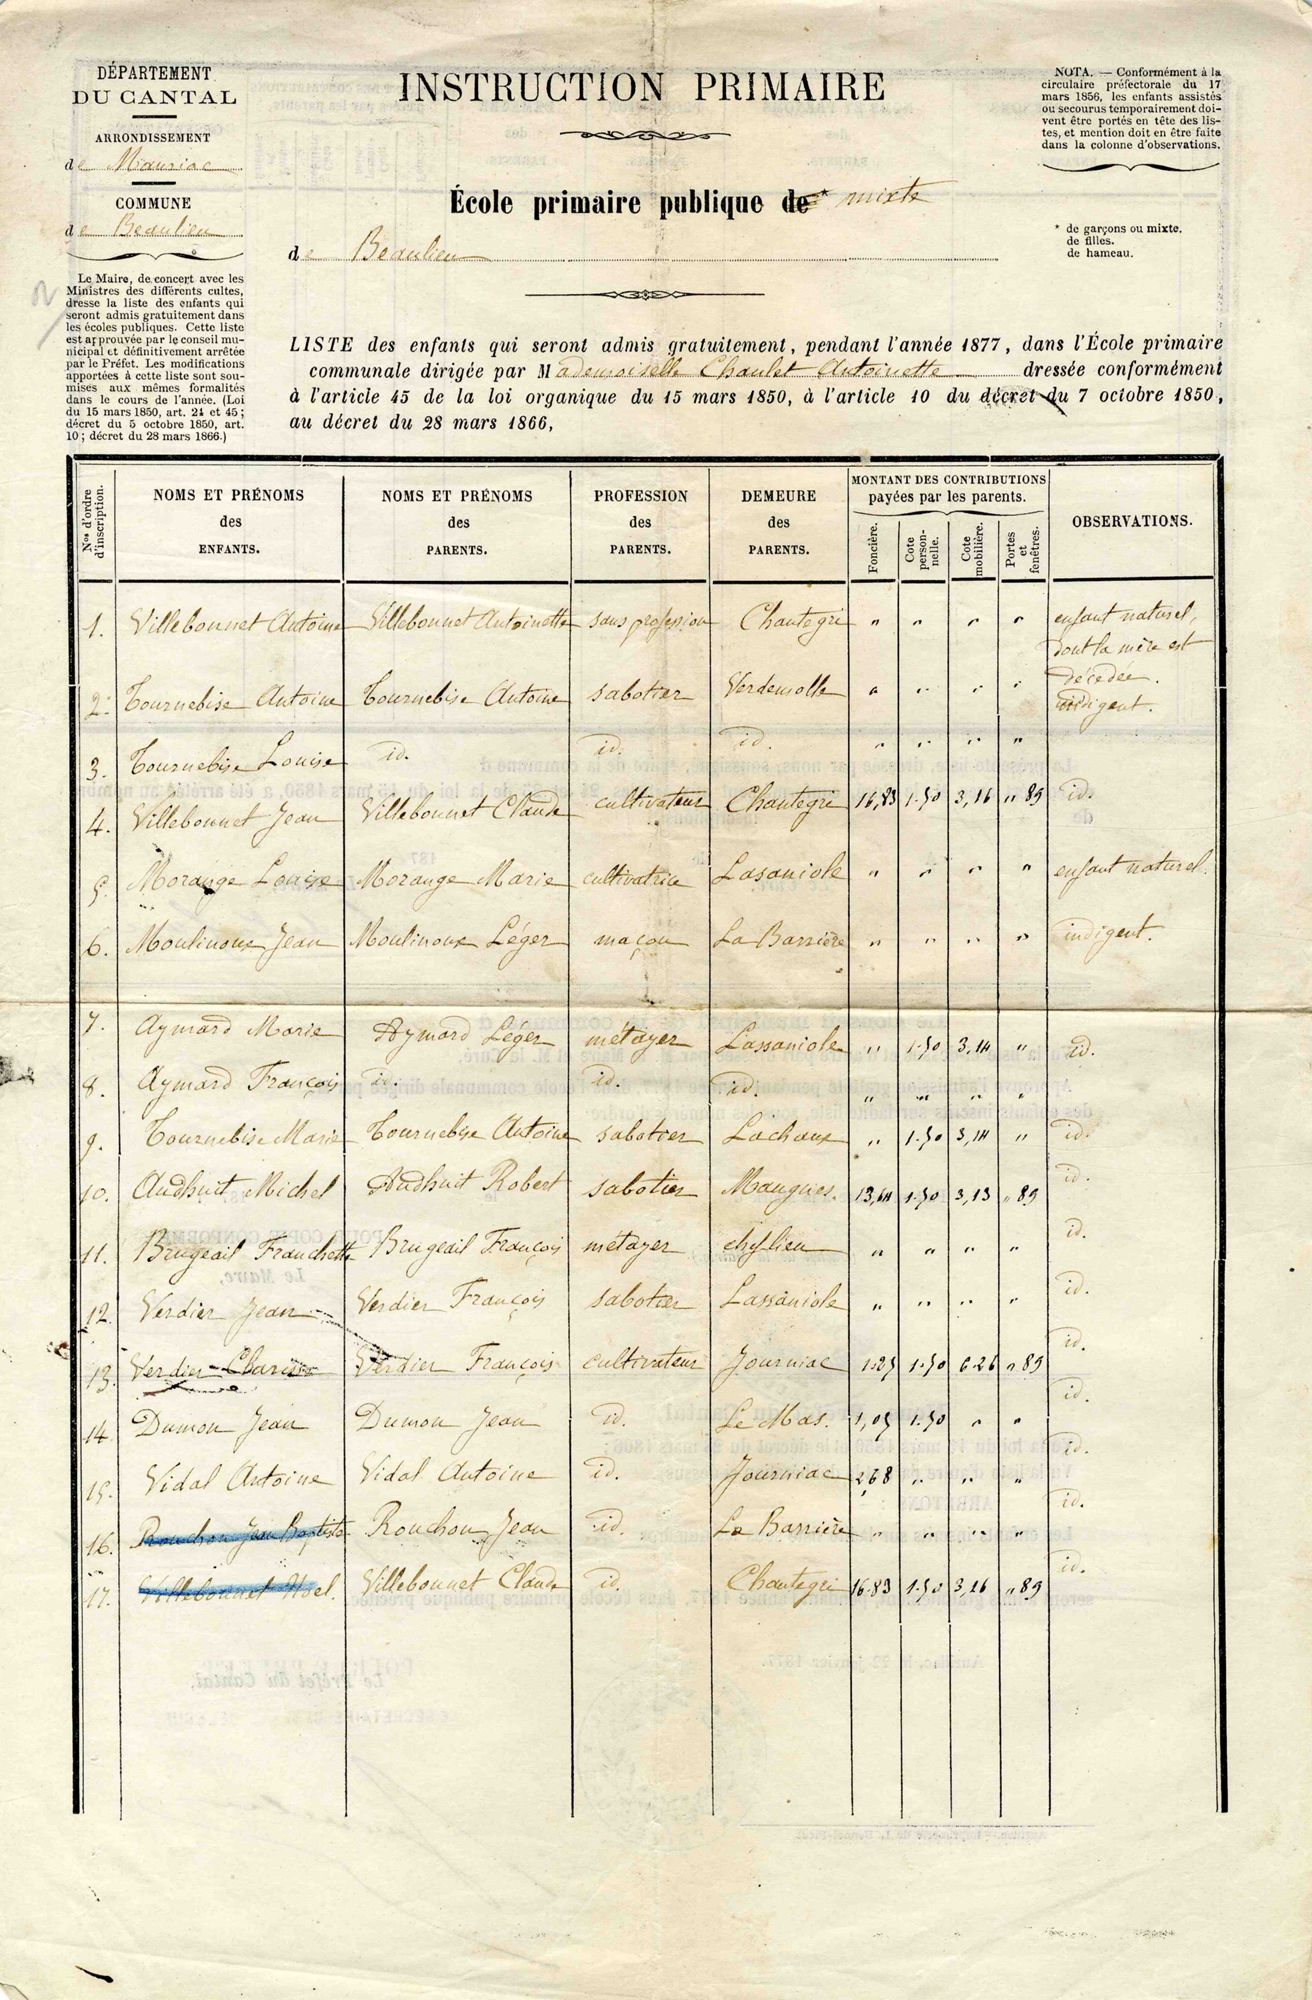 DÉPARTEMENT
DU CANTAL
ARRONDISSEMENT
de Mauriac
COMMUNE
de Beaulieu
Le Maire, de concert avec les
Ministres des différents cultes,
dresse la liste des enfants qui
seront admis gratuitement dans
les écoles publiques. Cette liste
est approuvée par le conseil mu-
nicipal et définitivement arrêtée
par le Préfet. Les modifications
apportées à cette liste sont sou-
mises aux mêmes formalités
dans le cours de l'année. (Loi
du 15 mars 1850, art. 24 et 45;
décret du 5 octobre 1850, art.
10; décret du 28 mars 1866.)
INSTRUCTION PRIMAIRE
École primaire publique de* mixte
de Beaulieu
NOTA. — Conformément à la
circulaire préfectorale du 17
mars 1856, les enfants assistés
ou secourus temporairement doi-
vent être portés en tête des lis-
tes, et mention doit en être faite
dans la colonne d'observations.
* de garçons ou mixte.
de filles.
de hameau.
LISTE des enfants qui seront admis gratuitement, pendant l'année 1877, dans l'École primaire
communale dirigée par Mademoiselle Chaulet Antoinette dressée conformément
à l'article 45 de la loi organique du 15 mars 1850, à l'article 10 du décret du 7 octobre 1850,
au décret du 28 mars 1866,
Nos d'ordre d'inscription. NOMS ET PRÉNOMS des ENFANTS. NOMS ET PRÉNOMS des PARENTS. PROFESSION des PARENTS. DEMEURE des PARENTS. MONTANT DES CONTRIBUTIONS payées par les parents. Foncière. Cote personnelle. Cote mobilière. Portes et fenêtres. OBSERVATIONS.
1. Villebonnet Antoine Villebonnet Antoinette sans profession Chantegri " " " " enfant naturel, dont la mère est décédée.
2. Tournebise Antoine Tournebise Antoine sabotier Verdemolle " " " " indigent.
3. Tournebise Louise id. id. id. " " " "
4. Villebonnet Jean Villebonnet Claude cultivateur Chantegri 16,83 1.50 3,16 " 89 id.
5. Morange Louise Morange Marie cultivatrice Lasaniole " " " " enfant naturel.
6. Moulinoux Jean Moulinoux Léger maçon La Barrière " " " " indigent.
7. Aymard Marie Aymard Léger métayer Lassaniole " 1.50 3,14 " id.
8. Aymard François id. id. id. " " " "
9. Tournebise Marie Tournebise Antoine sabotier Lachaux " 1.50 3,14 " id.
10. Audhuit Michel Audhuit Robert sabotier Maugues. 13,64 1.50 3,13 " 89 id.
11. Brugeail Franchette Brugeail François métayer " " " " id.
12. Verdier Jean Verdier François sabotier Lassaniole " " " " id.
13. Verdier Clarisse Verdier François cultivateur Journiac 1.25 1.50 6.26 " 89 id.
14. Dumon Jean Dumon Jean id. Le Mas. 1,05 1.50 " " id.
15. Vidal Antoine Vidal Antoine id. Journiac 2,68 " " " id.
16. Rouchon Jean Baptiste Rouchon Jean id. La Barrière " " " " id.
17. Villebonnet Noel. Villebonnet Claude id. Chantegri 16.83 1.50 3,26 " 89 id.